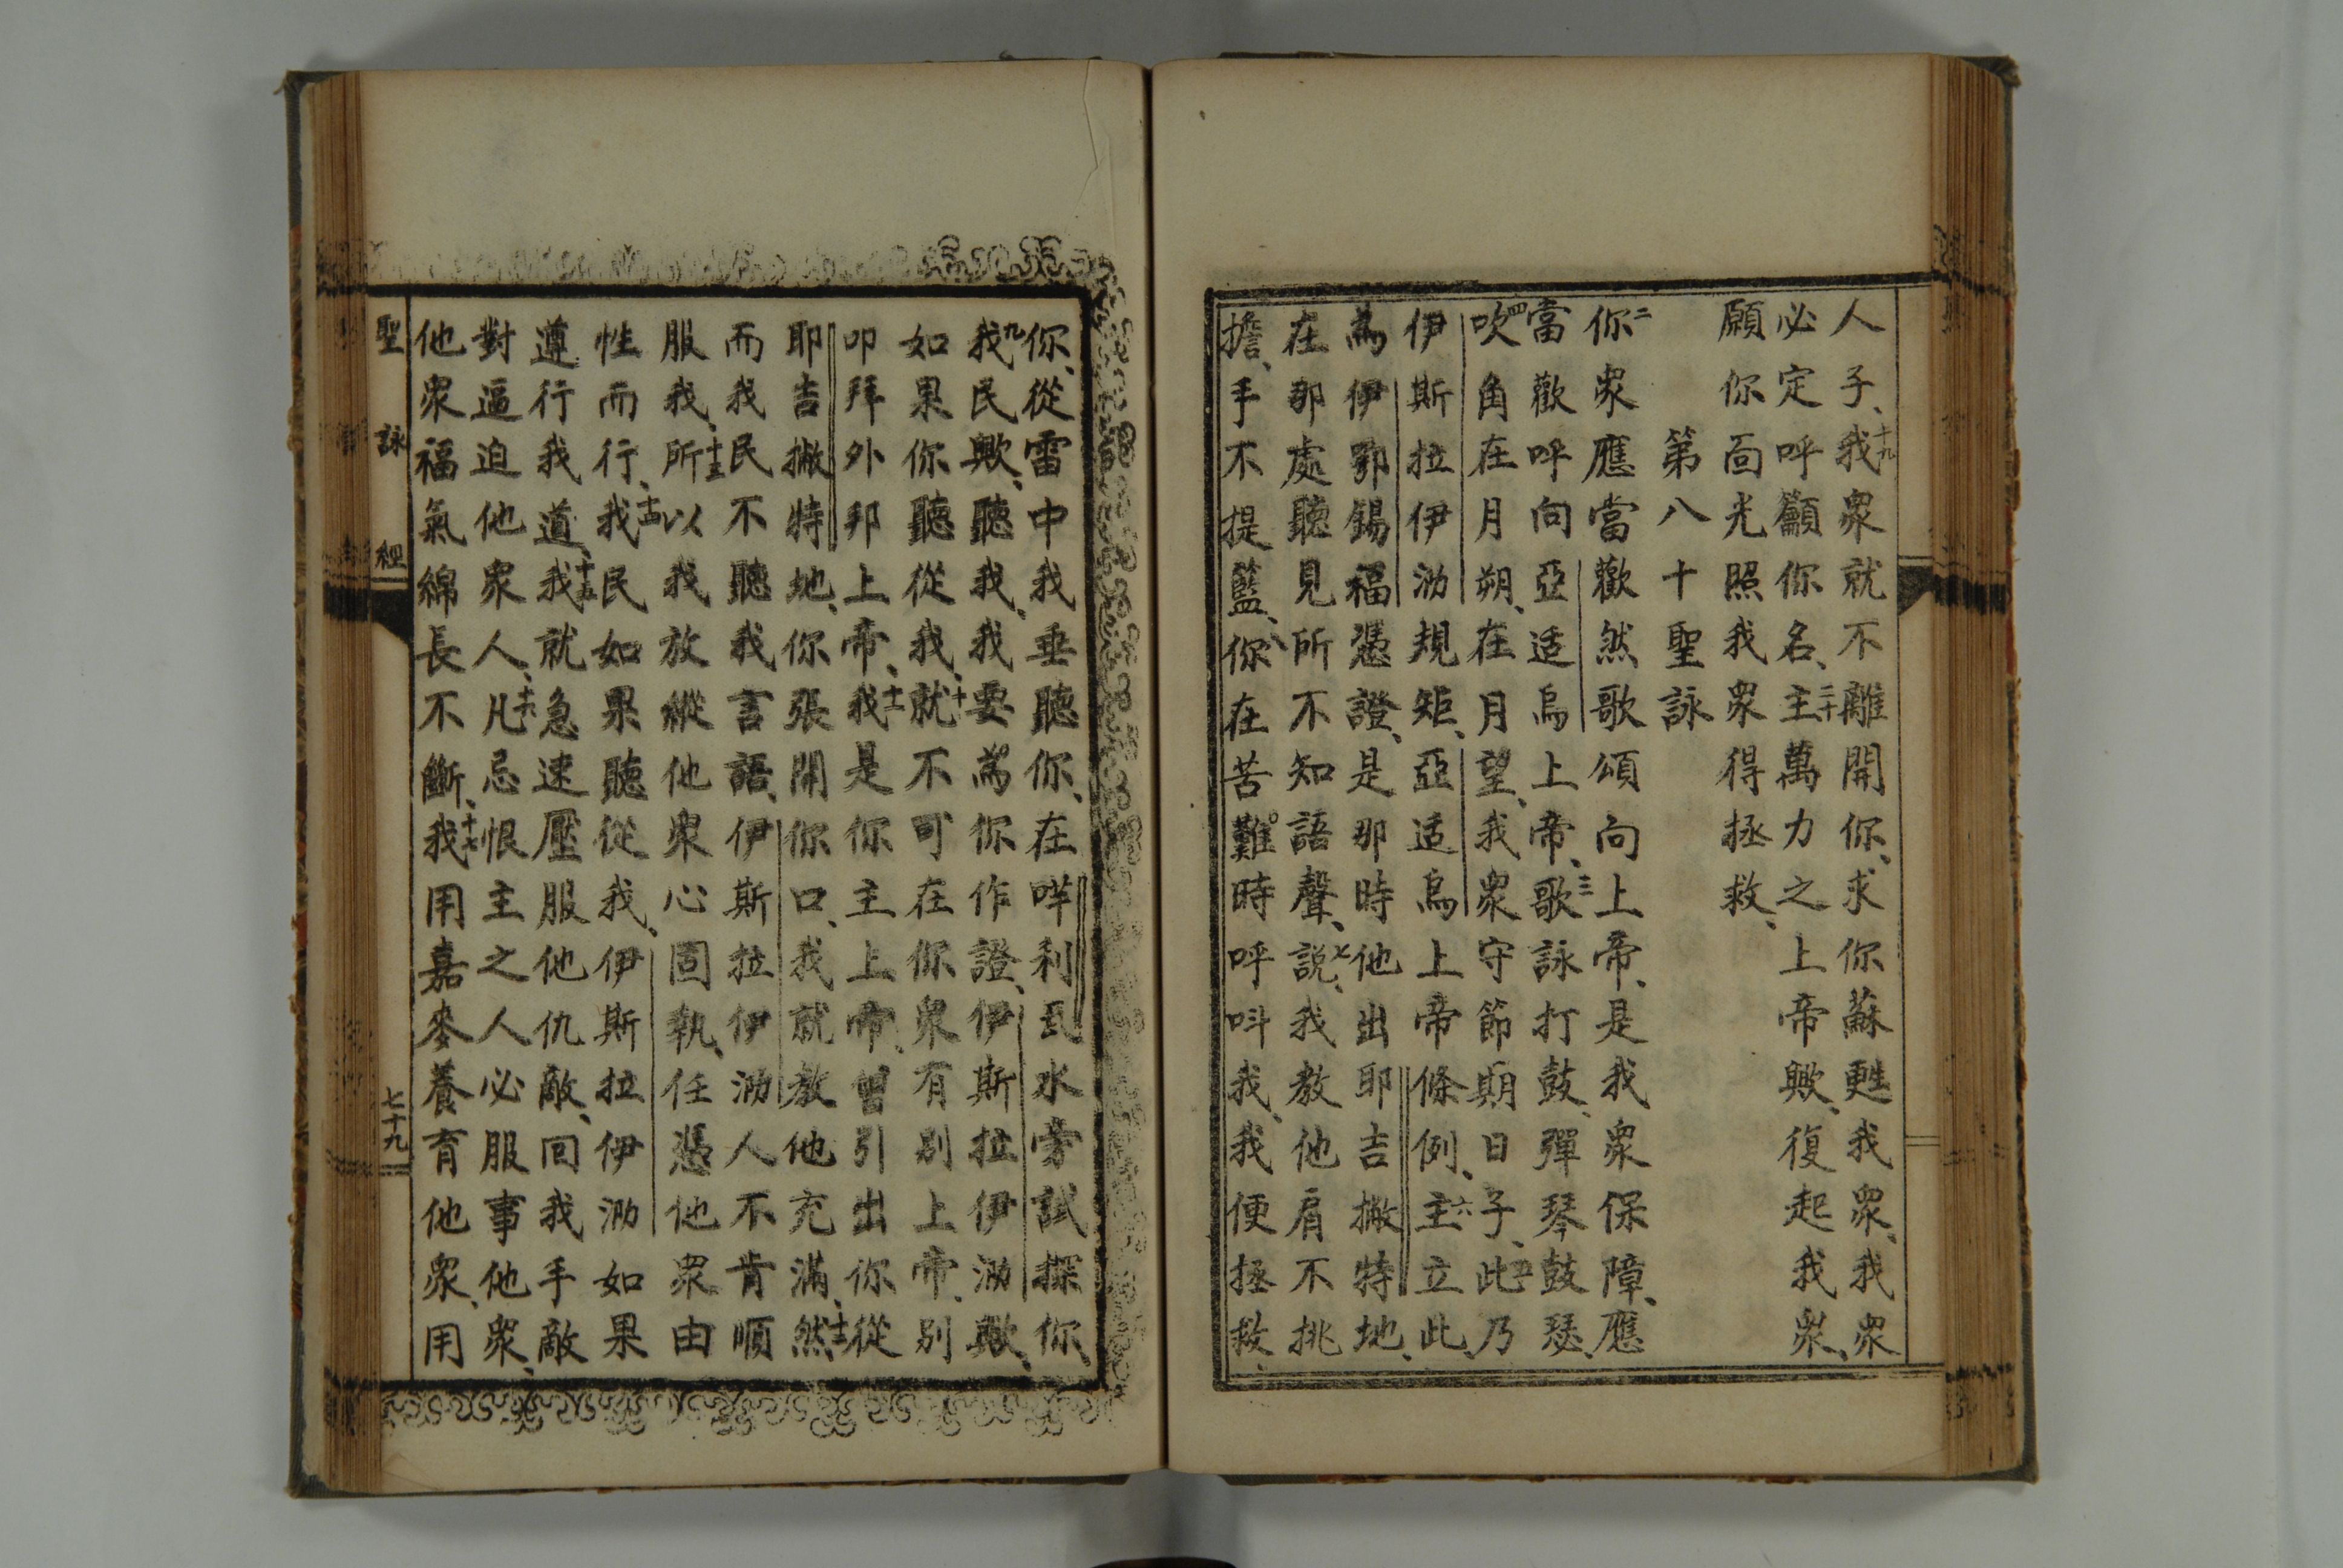 人子、十九我衆就不離開你、求你蘇甦我衆、我衆
必定呼籲你名、二十主萬力之上帝歟、復起我衆、
願你面光照我衆得拯救、
第八十聖詠
二你衆應當歡然歌頌向上帝、是我衆保障、應
當歡呼向亞适烏上帝、三歌詠打鼓、彈琴鼓瑟、
四吹角在月朔、在月望、我衆守節期日子、五此乃
伊斯拉伊泐規矩、亞适烏上帝條例、六主立此、
為伊鄂錫福憑證、是那時他出耶吉撇特地、
在那處聽見所不知語聲、七説、我教他肩不挑
擔、手不提籃、八你在苦難時呼呌我、我便拯救、
你、從雷中我垂聽你、在哶利瓦水旁試探你、
九我民歟、聽我、我要為你作證、伊斯拉伊泐歟、
如果你聽從我、十就不可在你衆有别上帝、别
叩拜外邦上帝、十一我是你主上帝、曾引出你從
耶吉撇特地、你張開你口、我就教他充滿、十二然
而我民不聽我言語、伊斯拉伊泐人不肯順
服我、十三所以我放縱他衆心固執、任憑他衆由
性而行、十四我民如果聽從我、伊斯拉伊泐如果
遵行我道、十五我就急速壓服他仇敵、回我手敵
對逼迫他衆人、十六凡忌恨主之人必服事他衆、
他衆福氣綿長不斷、十七我用嘉麥養育他衆、用
聖詠經
七十九